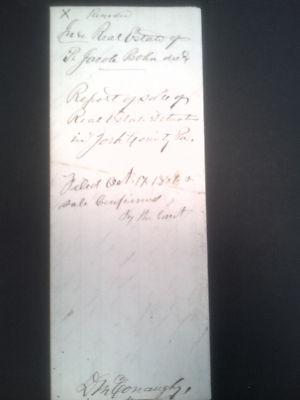 X
In re Real Estate of
Jacob Bohn decd
Report of sale of
Real Estate situate
in York County Pa.
Filed Oct. 17 &
sale Confirmed
By the Court
D McConaughy